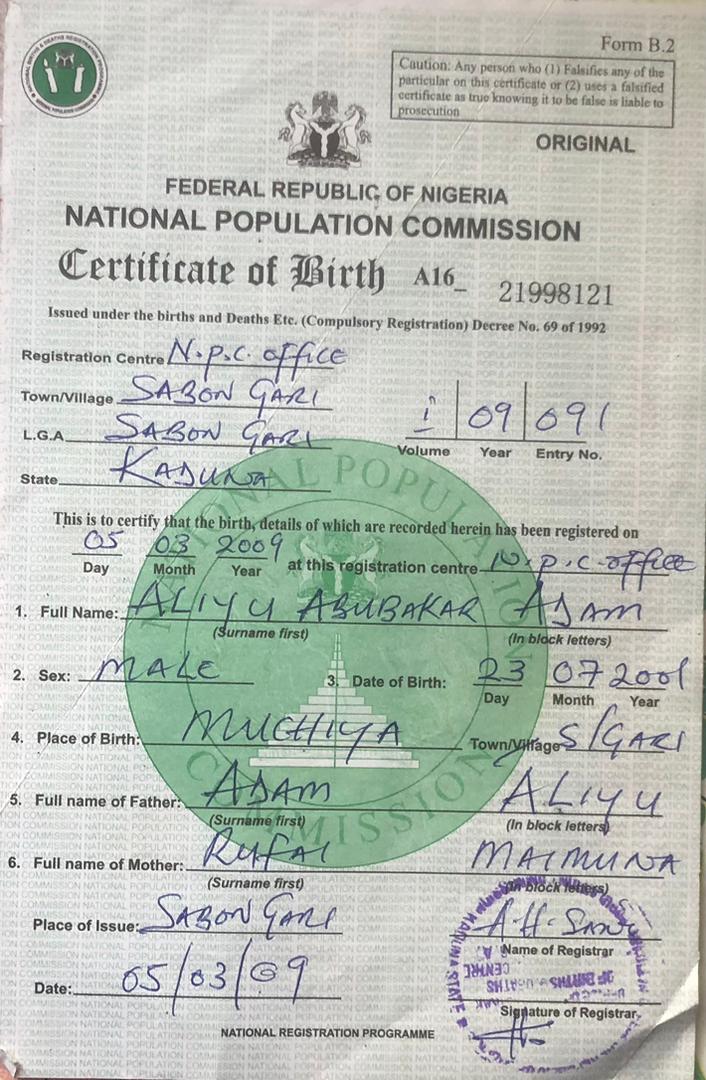 Form B.2
Caution: Any person who (1) Falsifies any of the
particular on this certificate or (2) uses a falsified
certificate as true knowing it to be false is liable to
prosecution
ORIGINAL
FEDERAL REPUBLIC OF NIGERIA
NATIONAL POPULATION COMMISSION
Certificate of Birth A16_ 21998121
Issued under the births and Deaths Etc. (Compulsory Registration) Decree No. 69 of 1992
Registration Centre N.p.C. office
Town/Village SABON GARI
L.G.A SABON GARI
i 09 091
Volume Year Entry No.
State KADUNA
This is to certify that the birth, details of which are recorded herein has been registered on
05 03 2009 at this registration centre N.p.C-office
Day Month Year
1. Full Name: ALIYU ABUBAKAR ADAM
(Surname first) (In block letters)
2. Sex: MALE 3. Date of Birth: 23 07 2001
Day Month Year
4. Place of Birth: MUCHIYA Town/Village S/GARI
5. Full name of Father: ADAM ALIYU
(Surname first) (In block letters)
6. Full name of Mother: RUFAI MAIMUNA
(Surname first) (In block letters)
Place of Issue: SABON GARI
Name of Registrar
Date: 05/03/09
Signature of Registrar
NATIONAL REGISTRATION PROGRAMME